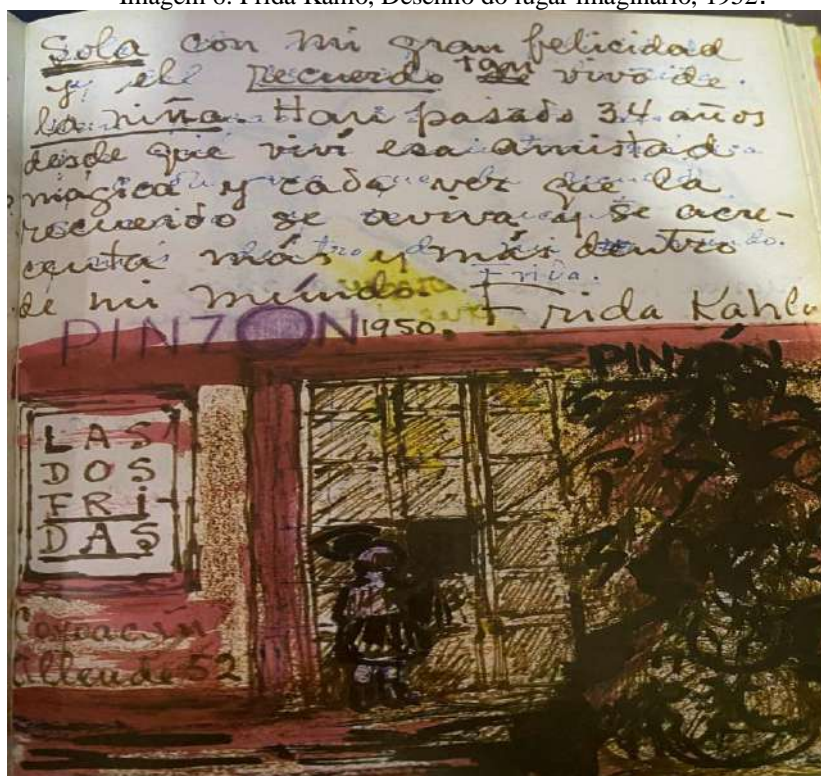 Imagem 6: Frida Kahlo, Desenho do lugar imaginário, 1952.
Sola con mi gran felicidad
y el recuerdo tan vivo de
la niña. Han pasado 34 años
desde que viví esa amistad
mágica y cada vez que la
recuerdo se aviva y se acre-
centa más y más dentro
de mi mundo.
Frida.
PINZÓN 1950. Frida Kahlo
PINZÓN
LAS
DOS
FRI-
DAS
Coyoacán
Allende 52